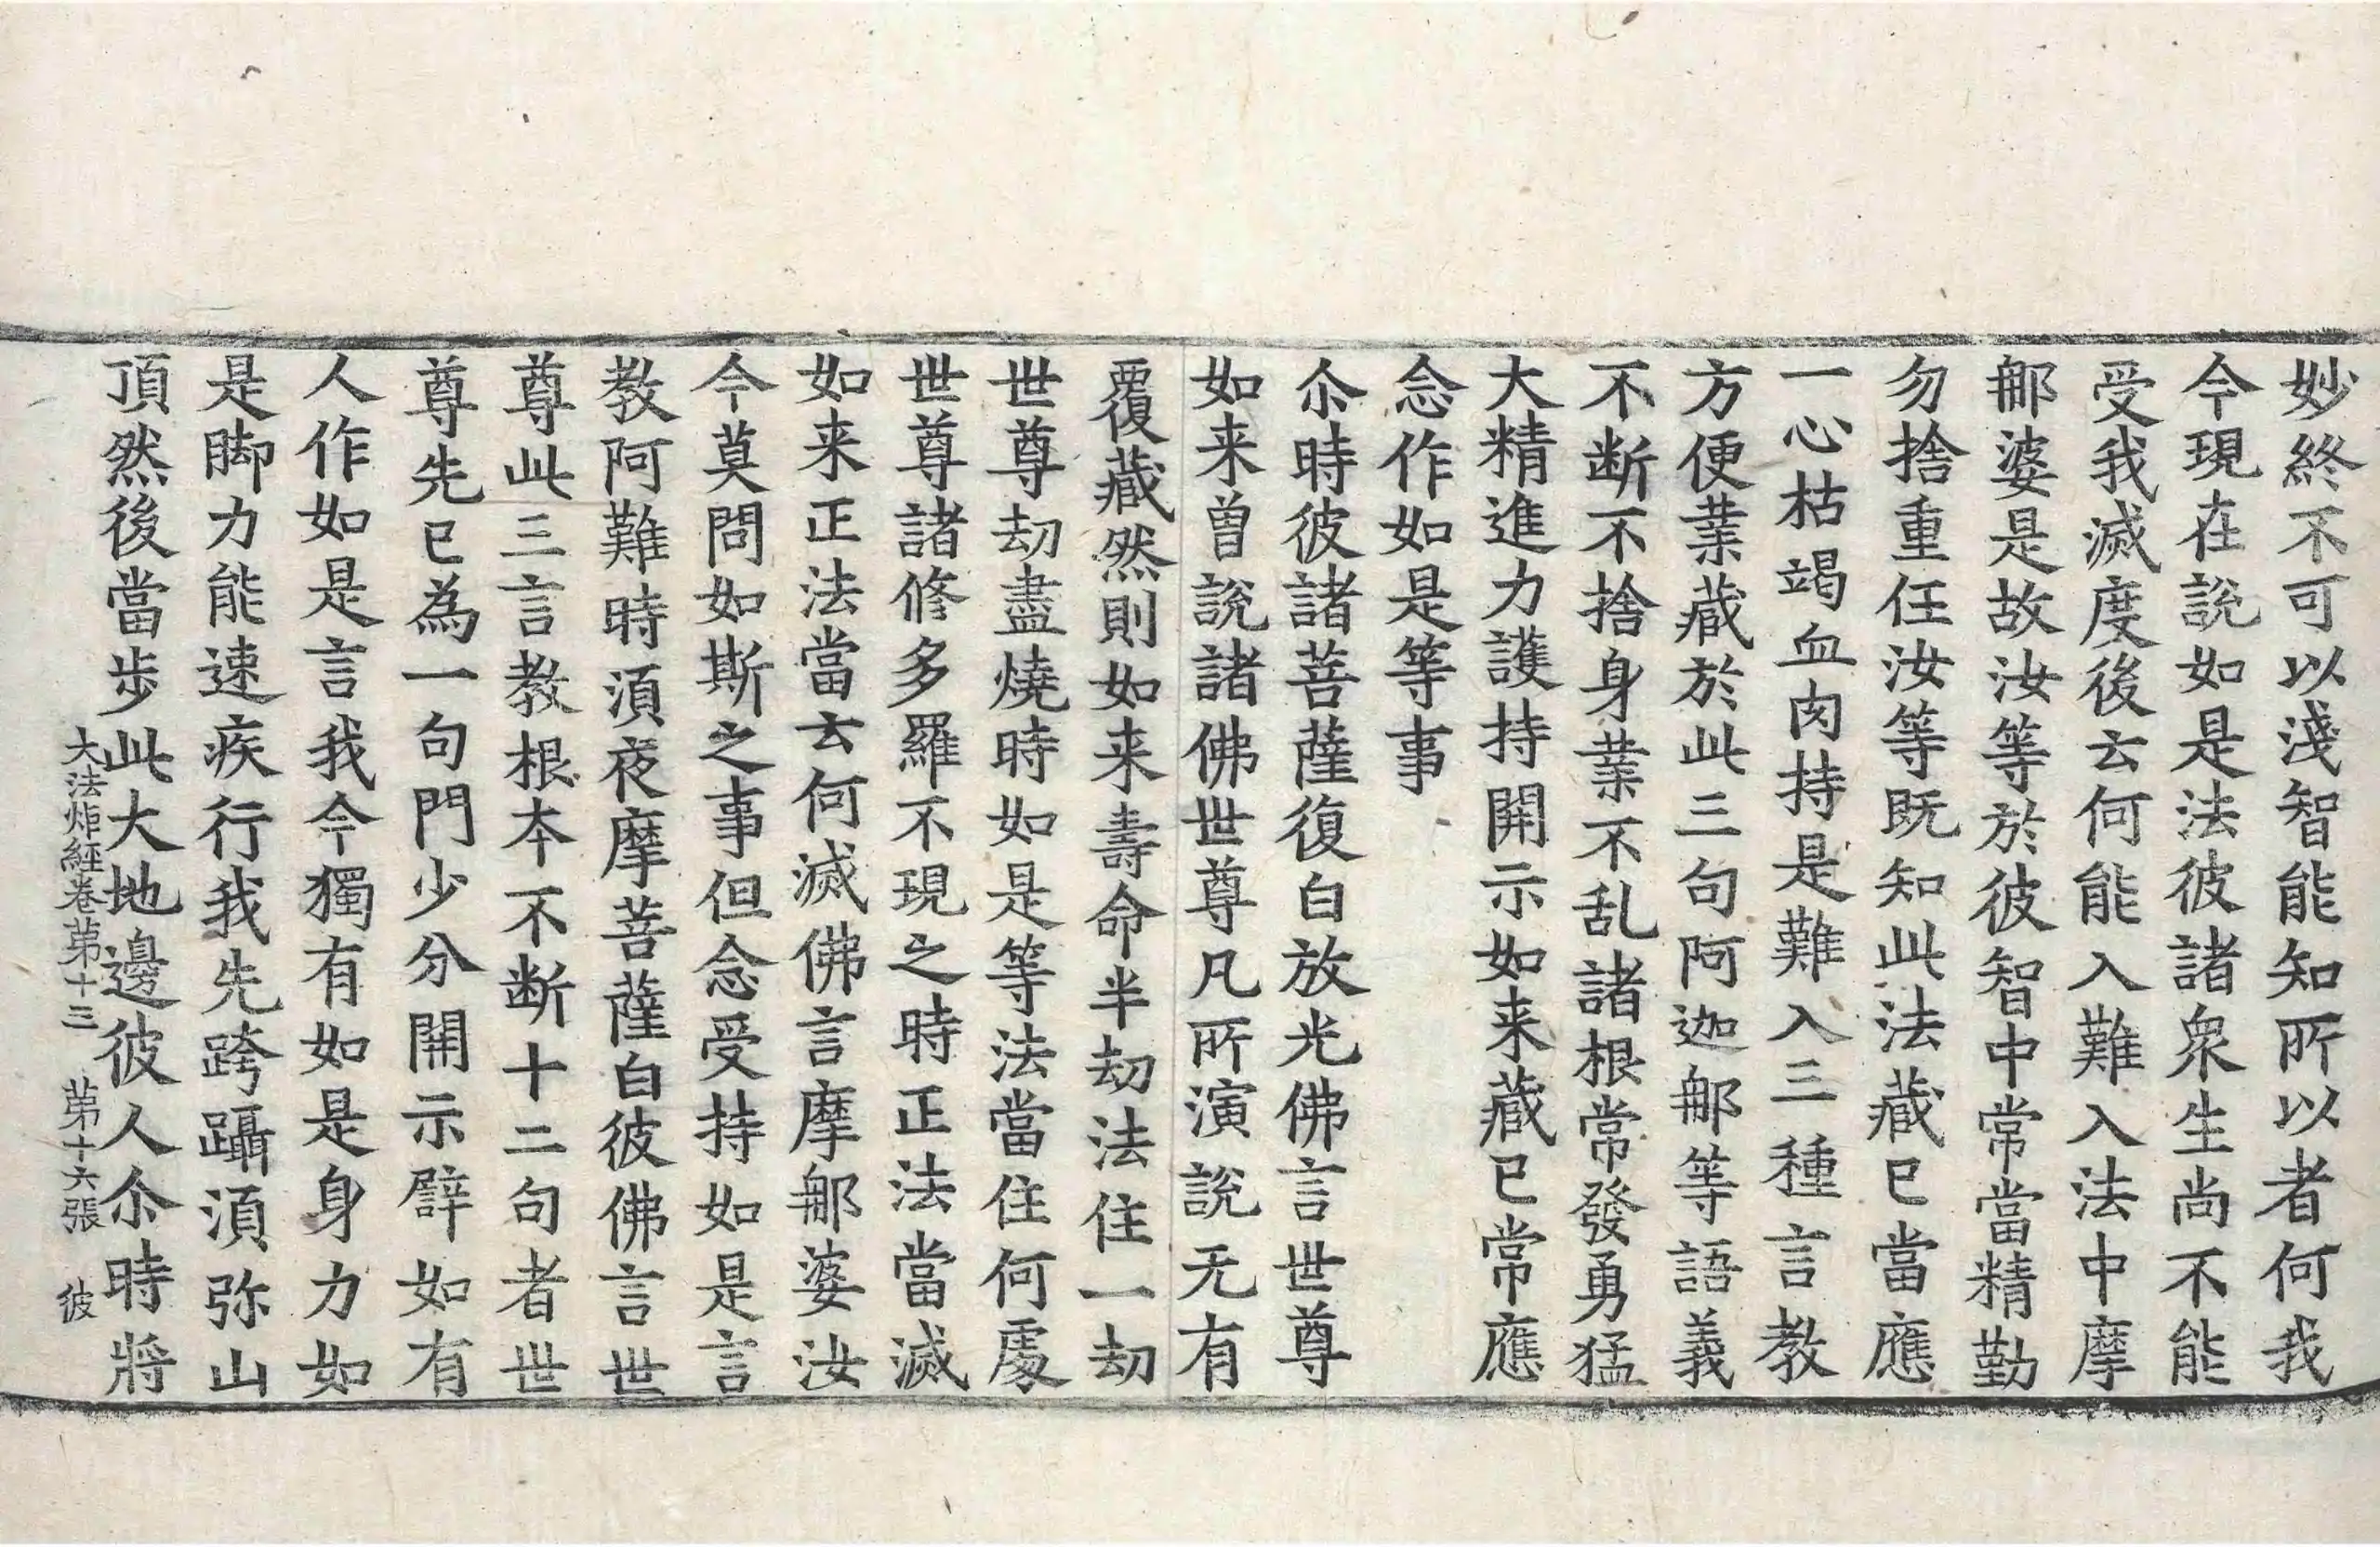 妙終不可以淺智能知所以者何我
今現在說如是法彼諸衆生尚不能
受我滅度後云何能入難入法中摩
那婆是故汝等於彼智中常當精勤
勿捨重任汝等既知此法藏已當應
一心枯竭血肉持是難入三種言教
方便業藏於此三句阿迦那等語義
不断不捨身業不乱諸根常發勇猛
大精進力護持開示如来藏已常應
念作如是等事
尒時彼諸菩薩復白放光佛言世尊
如来曾說諸佛世尊凡所演說无有
覆藏然則如来壽命半劫法住一劫
世尊劫盡燒時如是等法當住何處
世尊諸修多羅不現之時正法當滅
如来正法當云何滅佛言摩那婆汝
今莫問如斯之事但念受持如是言
教阿難時湏夜摩菩薩白彼佛言世
尊此三言教根本不断十二句者世
尊先已為一句門少分開示譬如有
人作如是言我今獨有如是身力如
是脚力能速疾行我先跨躡湏弥山
頂然後當步此大地邊彼人尒時將
大法炬經卷苐十三　苐十六張　彼